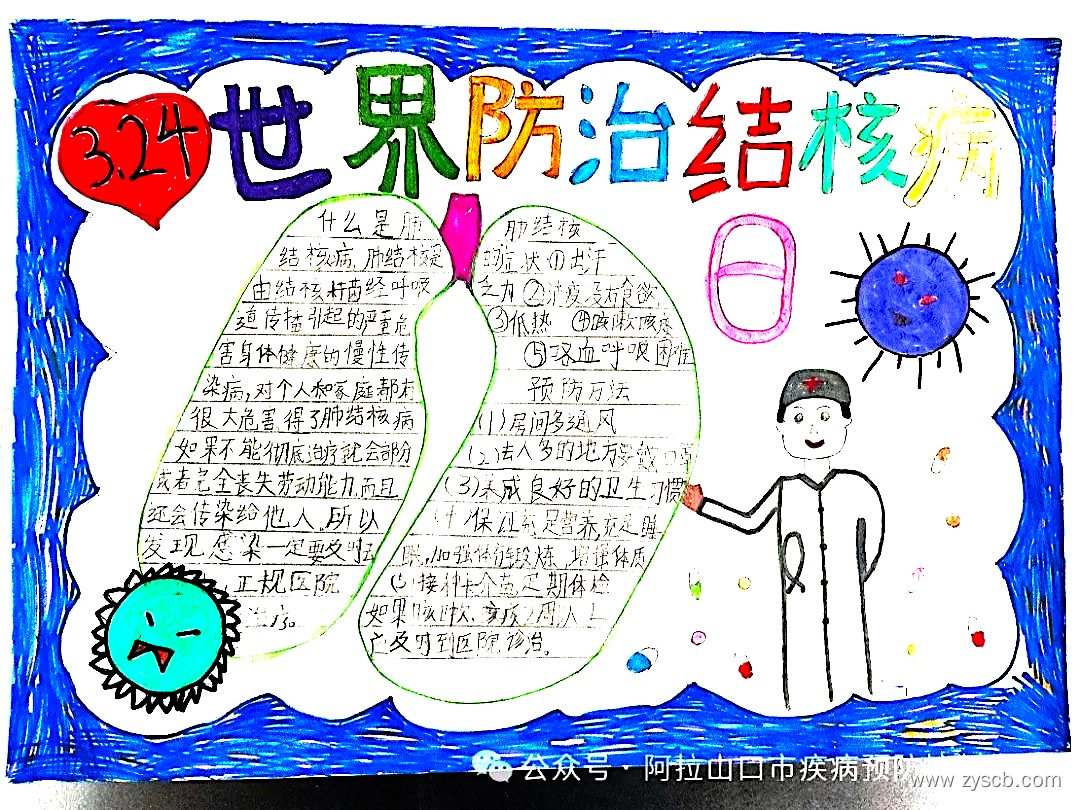 3.24 世界防治结核病日
什么是肺
结核病,肺结核是
由结核杆菌经呼吸
道传播引起的严重危
害身体健康的慢性传
染病,对个人和家庭都有
很大危害,得了肺结核病
如果不能彻底治疗就会部分
或者完全丧失劳动能力,而且
还会传染给他人。所以
发现感染一定要及时去
正规医院
治疗。
肺结核
症状①出汗
乏力②没有食欲
③低热 ④咳嗽咳痰
⑤咯血呼吸困难
预防方法
(1)房间多通风
(2)去人多的地方要戴口罩
(3)养成良好的卫生习惯
(4)保证充足营养,充足睡
眠,加强体育锻炼,增强体质
接种卡介苗,定期体检
如果咳嗽、咳痰2周以上
应及时到医院诊治。
公众号·阿拉山口市疾病预防
www.zyscb.com